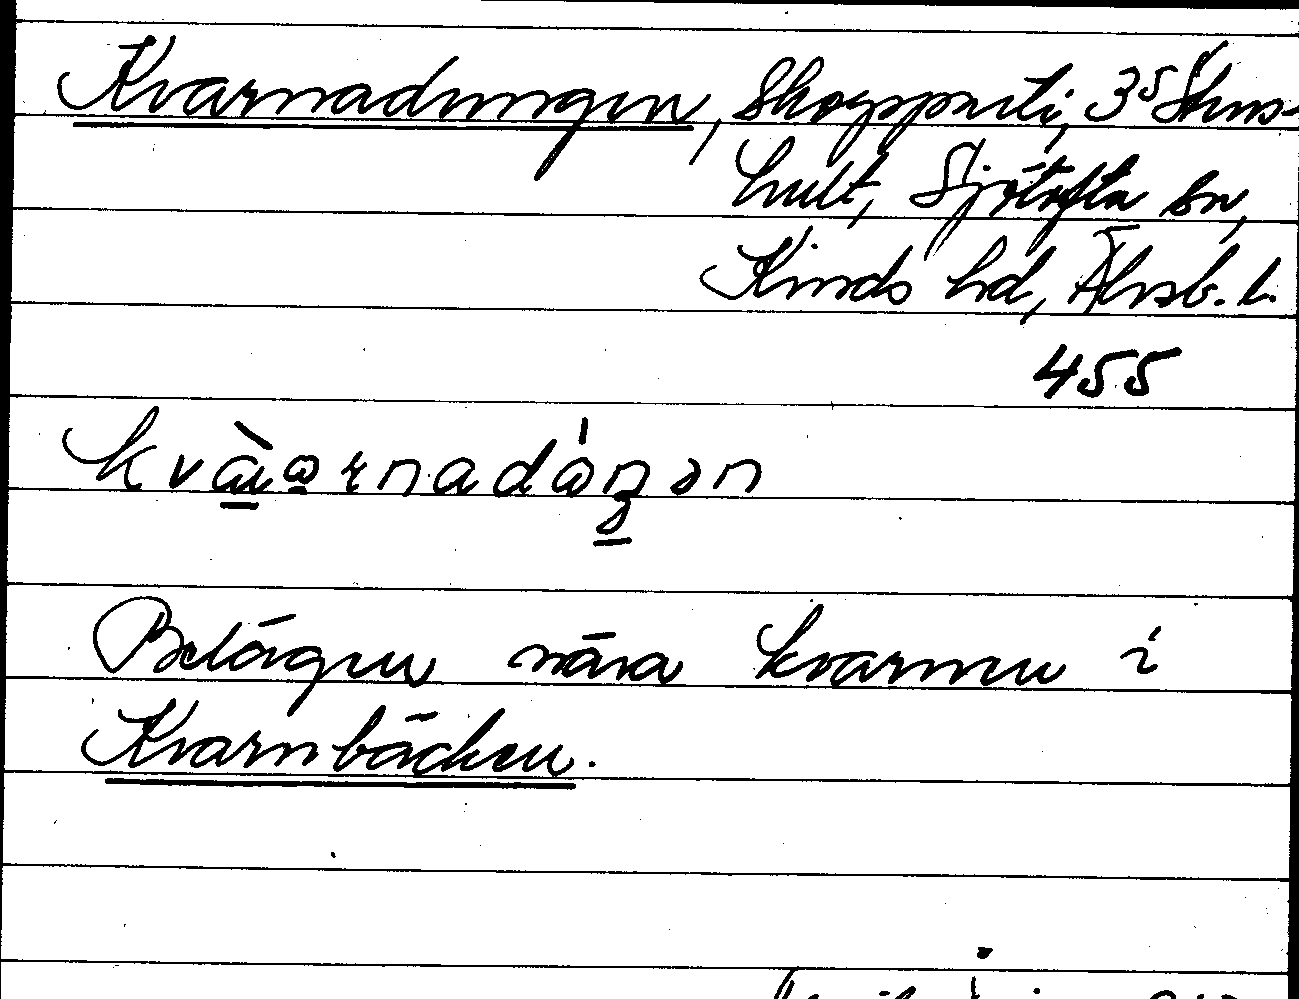 Kvarnadungen, Skogsparti, 3⁵ Stens-
hult, Sjötofta sn,
Kinds hd, Älvsb. l.
455
Belägen nära kvarnen i
Kvarnbäcken.